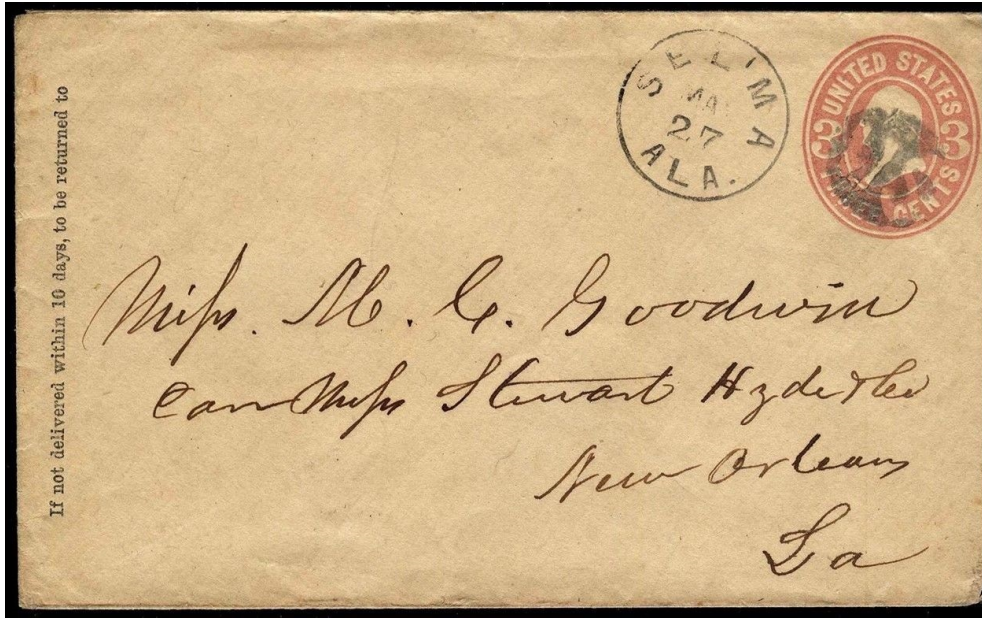 If not delivered within 10 days, to be returned to
SELMA
MA
27
ALA.
UNITED STATES
3 3
CENTS
Miss. M. C. Goodwin
Care Miss Stewart Hyde & Co
New Orleans
La